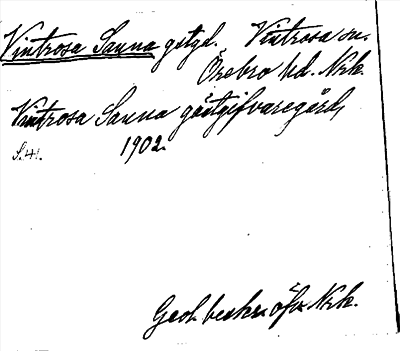 Vintrosa Sanna gätgd. Vintrosa sn.
Örebro hd. Nrk.
Vintrosa Sanna gästgifvaregård,
S.41. 1902.
Geol. beskr. öfv. Nrk.